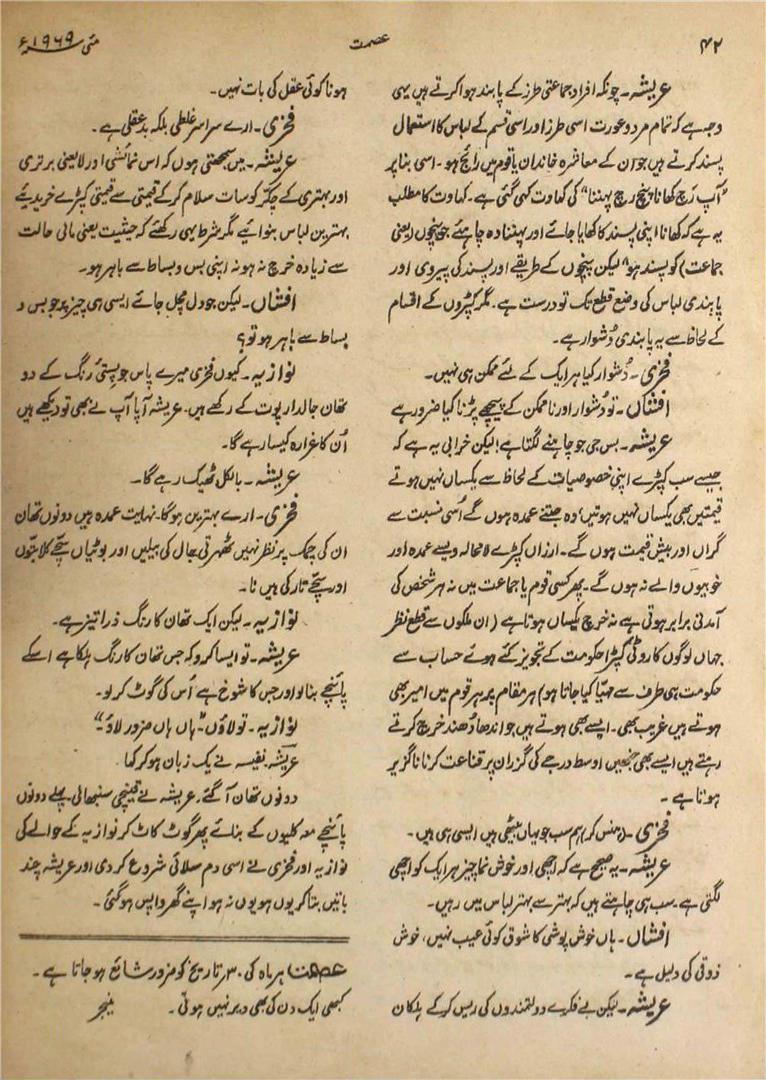 ۴۲
عصمت
مئی ۱۹۶۹ء
عریشہ۔ چونکہ افراد جماعتی طرز کے پابند ہوا کرتے ہیں یہی
وجہ ہے کہ تمام مرد و عورت اسی طرز اور اسی قسم کے لباس کا استعمال
پسند کرتے ہیں جو ان کے معاشرہ خاندان یا قوم میں رائج ہو۔ اسی بنا پر
"آپ رَچ کھانا پنچ رچ پہننا" کی کہاوت کہی گئی ہے۔ کہاوت کا مطلب
یہ ہے کہ کھانا اپنی پسند کا کھایا جائے اور پہننا وہ چاہئے جو پنچوں (یعنی
جماعت) کو پسند ہو" لیکن پنچوں کے طریقے اور پسند کی پیروی اور
پابندی لباس کی وضع قطع تک تو درست ہے۔ مگر کپڑوں کے اقسام
کے لحاظ سے یہ پابندی دُشوار ہے۔
فخری۔ دُشوار کیا ہر ایک کے لئے ممکن ہی نہیں۔
افشاں۔ تو دُشوار اور ناممکن کے پیچھے پڑنا کیا ضرور ہے
عریشہ۔ بس جی جو چاہنے لگتا ہے! لیکن خرابی یہ ہے کہ
جیسے سب کپڑے اپنی خصوصیات کے لحاظ سے یکساں نہیں ہوتے
قیمتیں بھی یکساں نہیں ہوتیں، وہ جتنے عمدہ ہوں گے اُسی نسبت سے
گراں اور بیش قیمت ہوں گے۔ ارزاں کپڑے لامحالہ ویسے عمدہ اور
خوبیوں والے نہ ہوں گے۔ پھر کسی قوم یا جماعت میں نہ ہر شخص کی
آمدنی برابر ہوتی ہے نہ خرچ یکساں ہوتا ہے (ان ملکوں سے قطع نظر
جہاں لوگوں کا روٹی کپڑا حکومت کے تجویز کئے ہوئے حساب سے
حکومت ہی طرف سے مہیّا کیا جاتا ہو) ہر مقام پر ہر قوم میں امیر بھی
ہوتے ہیں غریب بھی۔ ایسے بھی ہوتے ہیں جو اندھا دُھند خرچ کرتے
رہتے ہیں ایسے بھی جنھیں اوسط درجے کی گزران پر قناعت کرنا ناگزیر
ہوتا ہے۔
فخری۔ (ہنس کر) ہم سب جو یہاں بیٹھی ہیں ایسی ہی ہیں۔
عریشہ۔ یہ صحیح ہے کہ اچھی اور خوش نما چیز ہر ایک کو اچھی
لگتی ہے۔ سب ہی چاہتے ہیں کہ بہتر سے بہتر لباس میں رہیں۔
افشاں۔ ہاں خوش پوشی کا شوق کوئی عیب نہیں، خوش
ذوقی کی دلیل ہے۔
عریشہ۔ لیکن بے فکرے دولتمندوں کی ریس کرکے ہلکان
ہونا کوئی عقل کی بات نہیں۔
فخری۔ ارے سراسر غلطی بلکہ بدعقلی ہے۔
عریشہ۔ میں سمجھتی ہوں کہ اس نمائشی اور لایعنی برتری
اور بہتری کے چکّر کو سات سلام کرکے قیمتی سے قیمتی کپڑے خریدیئے
بہترین لباس بنوائیے مگر شرط یہی رکھئے کہ حیثیت یعنی مالی حالت
سے زیادہ خرچ نہ ہو نہ اپنی بس و بساط سے باہر ہو۔
افشاں۔ لیکن جو دل مچل جائے ایسی ہی چیز پر جو بس و
بساط سے باہر ہو تو؟
نوازیہ۔ کیوں فخری میرے پاس جو پستئی رنگ کے دو
تھان جالدار پوت کے رکھے ہیں۔ عریشہ آپا آپ نے بھی تو دیکھے ہیں
اُن کا غرارہ کیسا رہے گا۔
عریشہ۔ بالکل ٹھیک رہے گا۔
فخری۔ ارے بہترین ہوگا۔ نہایت عمدہ ہیں دونوں تھان
ان کی چمک پر نظر نہیں ٹھہرتی جال کی بیلیں اور بوٹیاں سچّے کلابتّوں
اور سچّے تار کی ہیں نا۔
نوازیہ۔ لیکن ایک تھان کا رنگ ذرا تیز ہے۔
عریشہ۔ تو ایسا کرو کہ جس تھان کا رنگ ہلکا ہے اسکے
پائنچے بنالو اور جس کا شوخ ہے اُس کی گوٹ کرلو۔
نوازیہ۔ تو لاؤں۔ "ہاں ہاں ضرور لاؤ۔"
عریشہ نفیسہ نے یک زبان ہو کر کہا
دونوں تھان آ گئے۔ عریشہ نے قینچی سنبھالی۔ پہلے دونوں
پائنچے مع کلیوں کے بنائے پھر گوٹ کاٹ کر نوازیہ کے حوالے کی
نوازیہ اور فخری نے اسی دم سلائی شروع کردی اور عریشہ چند
باتیں بتا کر یوں ہو یوں نہ ہو اپنے گھر واپس ہوگئی۔
عصمت ہر ماہ کی ۳۰ تاریخ کو ضرور شائع ہوجاتا ہے۔
کبھی ایک دن کی بھی دیر نہیں ہوتی۔ منیجر